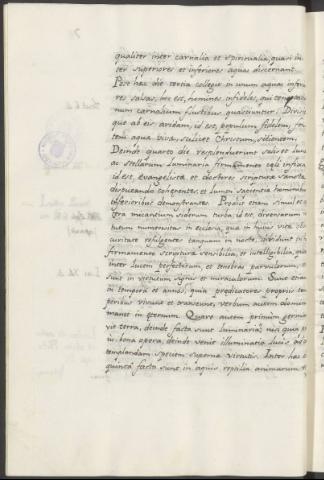 qualiter inter carnalia et spiritualia, quasi in
ter superiores et inferiores aquas discernant.
Post hac die tertia collegit in unum aquas inferio
res salsas, hoc est, homines infideles, qui tempesta
num carnalium fluctibus quatiuntur: Divisit
que ab eis aridam, id est, populum fidelium, fon
tem aquæ vivæ, scilicet Christum, sitientem.
Deinde quarto die resplenduerunt solis et lunæ
ac stellarum luminaria firmamento cæli infixa
id est, evangelistæ et doctores scriptura sancta
disputando cohærentes et lumen sapientia hominibus
inferioribus demonstrantes. Prodiit etiam simul et
tera micantium siderum turba, id est, diversarum vir
tutum numerositas in ecclesia, quæ in huius vitæ obs
curitate refulgentes tanquam in nocte, dividunt in
firmamento scriptura sensibilia, et intelligibilia, quasi
inter lucem perfectorum, et tenebras parvulorum, et
sunt in virtutum signis et miraculorum: Sunt etiam
in tempora et annos, quia prædicatores propriis tem
poribus vivunt et transeunt, verbum autem domini
manet in æternum. Quare autem primum germina
vit terra, deinde facta sunt luminaria, nisi quia post
bona opera, deinde venit illuminatio lucis, ad con
templandam speciem superna virtutis. Inter hæc die
quinta facta sunt in aquis reptilia animarum